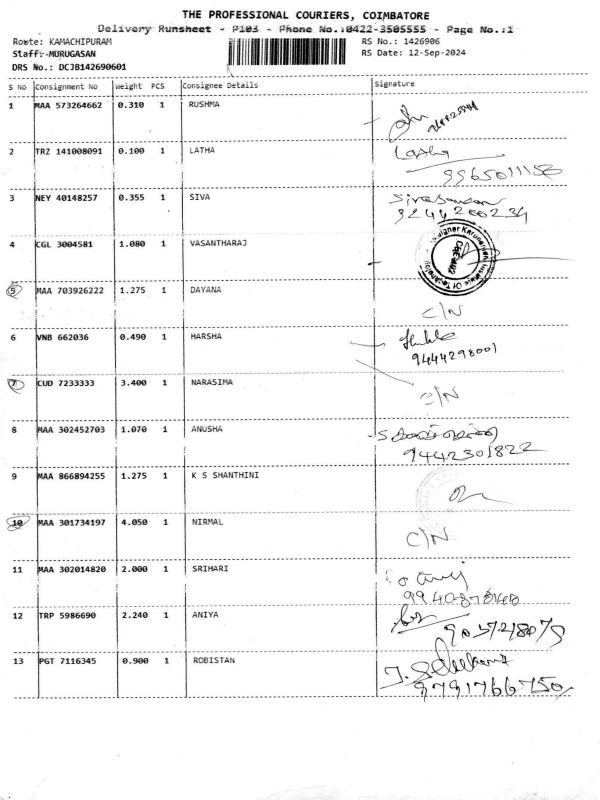 THE PROFESSIONAL COURIERS, COIMBATORE
Delivery Runsheet - P103 - Phone No.:0422-3505555 - Page No.:1
Route: KAMACHIPURAM RS No.: 1426906
Staff: MURUGASAN RS Date: 12-Sep-2024
DRS No.: DCJB142690601
S No Consignment No Weight PCS Consignee Details Signature
1 MAA 573264662 0.310 1 RUSHMA
2 TRZ 141008091 0.100 1 LATHA Latha
9965011156
3 NEY 40148257 0.355 1 SIVA
9244200234
4 CGL 3004581 1.080 1 VASANTHARAJ
5 MAA 703926222 1.275 1 DAYANA C/N
6 VNB 662036 0.490 1 HARSHA
9444298001
7 CUD 7233333 3.400 1 NARASIMA C/N
8 MAA 302452703 1.070 1 ANUSHA
9442301822
9 MAA 866894255 1.275 1 K S SHANTHINI
10 MAA 301734197 4.050 1 NIRMAL C/N
11 MAA 302014820 2.000 1 SRIHARI
12 TRP 5986690 2.240 1 ANIYA
13 PGT 7116345 0.900 1 ROBISTAN
9791766750